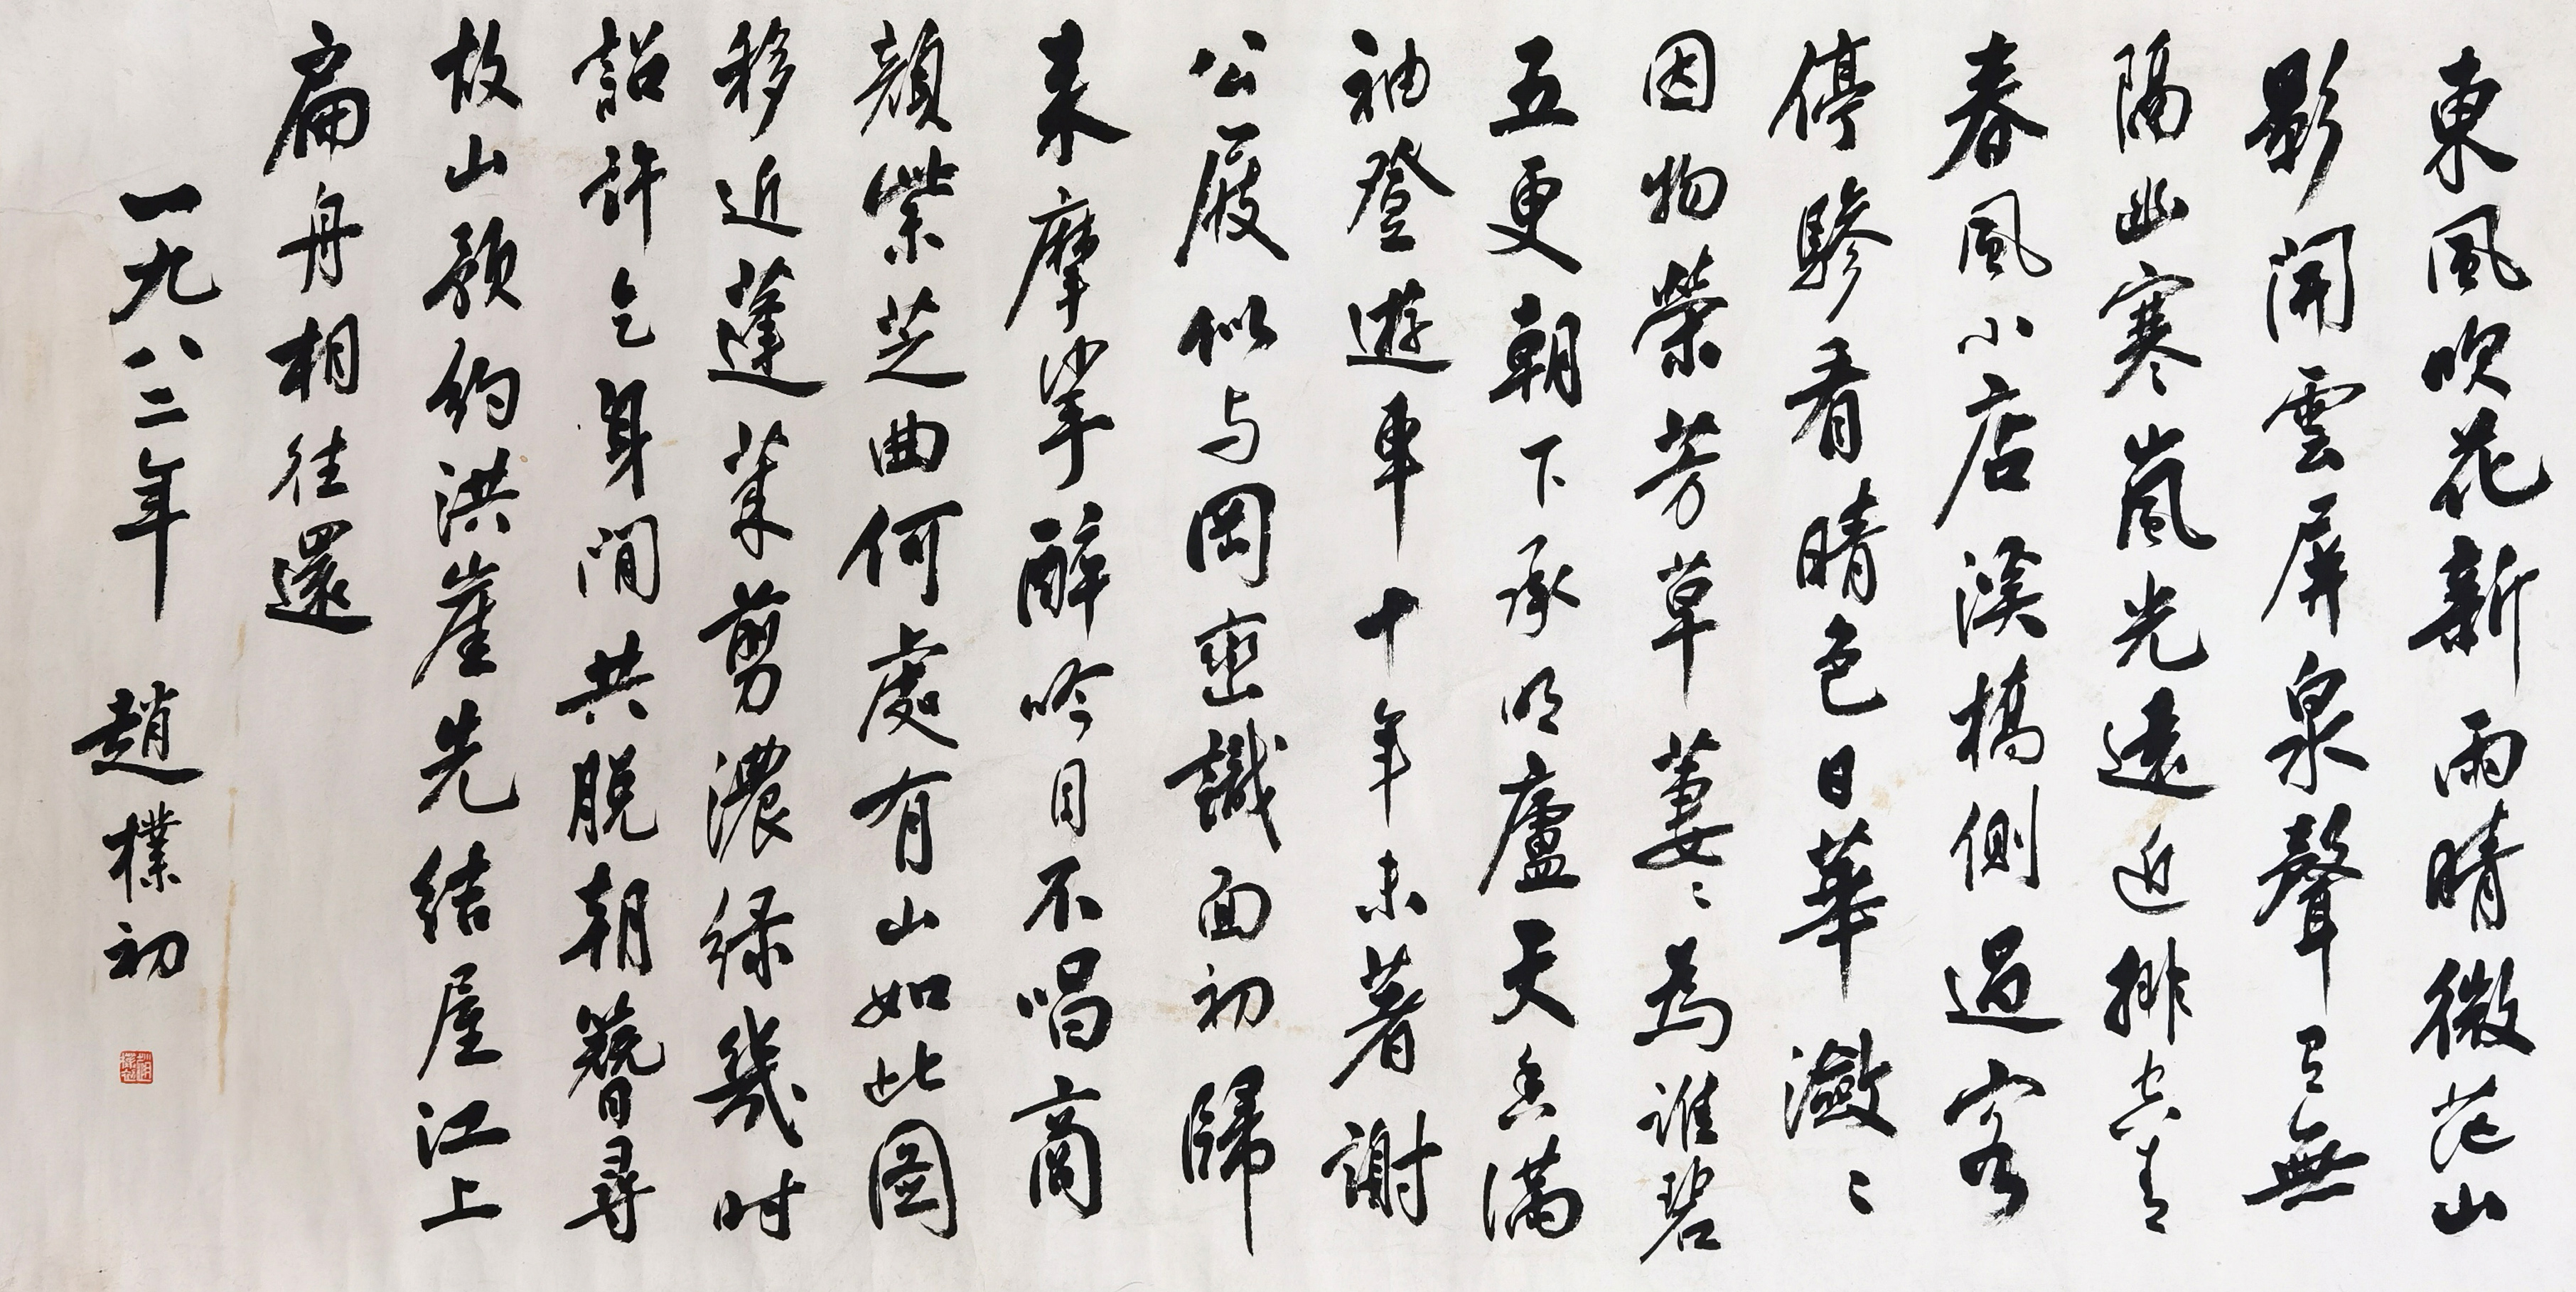 東風吹花新雨晴微茫山
影開雲屏泉聲有無
隔幽寒嵐光遠近排空青
春風小店溪橋側過客
停驂看晴色日華瀲〻
因物榮芳草萋〻為誰碧
五更朝下承明廬天香滿
袖登遊車十年未著謝
公屐似与岡巒識面初歸
来摩挲醉吟目不唱商
顏紫芝曲何處有山如此圖
移近蓬萊剪濃緑幾时
詔許乞身閒共脱朝簪尋
故山預約洪崖先結屋江上
扁舟相往還
一九八二年 趙樸初
趙樸初